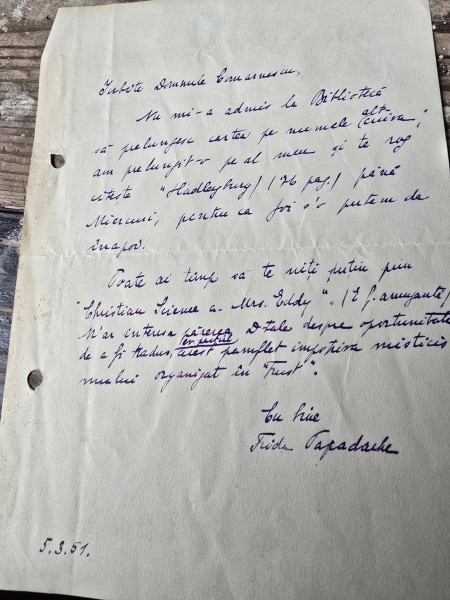 Iubite Domnule Comarnescu,
Nu mi-a admis la Bibliotecă
să prelungesc cartea pe numele alt-
cuiva;
am prelungit-o pe al meu și te rog
citește "Hadleyburg" (76 pag.) până
Miercuri, pentru ca Joi s'o putem da
înapoi.
Poate ai timp să te uiți puțin prin
"Christian Science a. Mrs. Eddy". (E f. amuzantă)
M'ar interesa părerea D-tale despre oportunitatea
de a fi tradus, acest pamflet împotriva misticis
mului organizat în "Trust".
Cu bine
Frida Papadache
5.3.51.